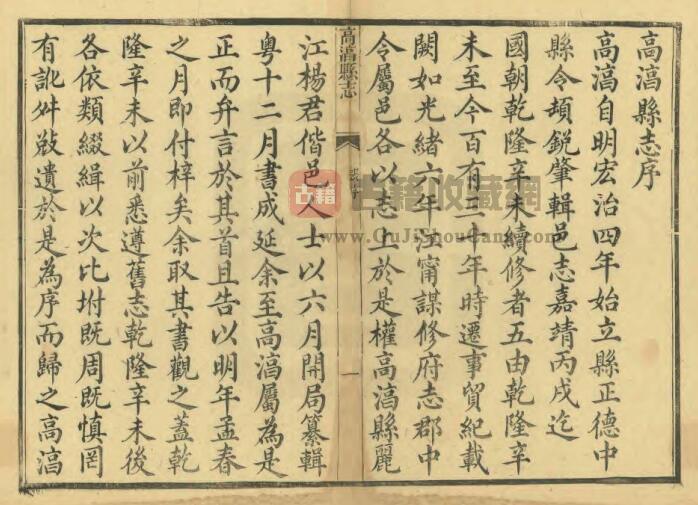 高湻縣志序
高湻自明宏治四年始立縣正德中
縣令頓銳肇輯邑志嘉靖丙戌迄
國朝乾隆辛未續修者五由乾隆辛
未至今百有三十年時遷事貿紀載
闕如光緒六年江甯謀修府志郡中
令屬邑各以志上於是權高湻縣麗
高湻縣志
一
江楊君偕邑人士以六月開局纂輯
粵十二月書成延余至高湻屬為是
正而弁言於其首且告以明年孟春
之月即付梓矣余取其書觀之蓋乾
隆辛未以前悉遵舊志乾隆辛未後
各依類綴緝以次比坿既周既慎罔
有訛舛敚遺於是為序而歸之高湻
古籍
古籍收藏網
www.GuJiShouCang.com